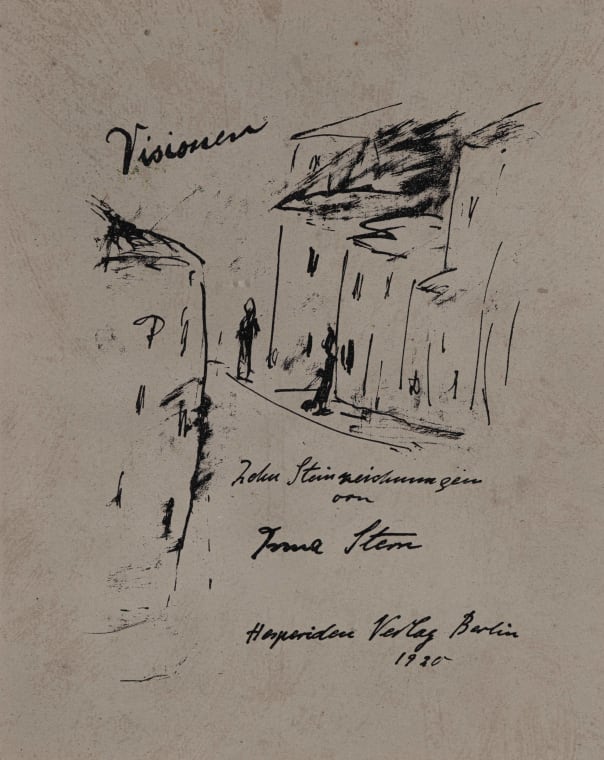 Visionen
Zehn Steinzeichnungen
von
Irma Stern
Hesperiden Verlag Berlin
1920